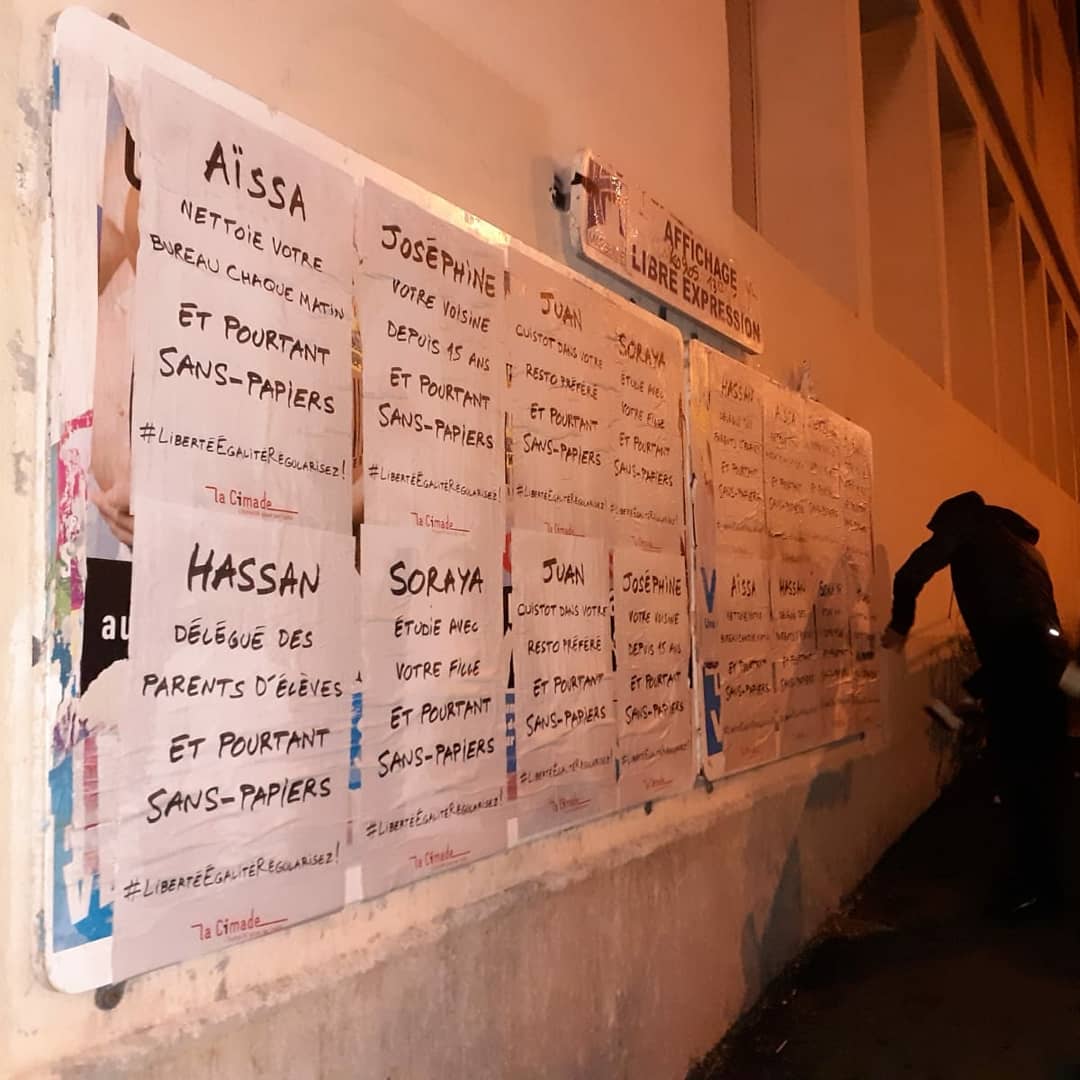 AÏSSA
NETTOIE VOTRE
BUREAU CHAQUE MATIN
ET POURTANT
SANS-PAPIERS
#LIBERTÉÉGALITÉRÉGULARISEZ!
la Cimade
JOSÉPHINE
VOTRE VOISINE
DEPUIS 15 ANS
ET POURTANT
SANS-PAPIERS
#LIBERTÉÉGALITÉRÉGULARISEZ!
la Cimade
JUAN
CUISTOT DANS VOTRE
RESTO PRÉFÉRÉ
ET POURTANT
SANS-PAPIERS
#LIBERTÉÉGALITÉRÉGULARISEZ!
la Cimade
SORAYA
ÉTUDIE AVEC
VOTRE FILLE
ET POURTANT
SANS-PAPIERS
#LIBERTÉÉGALITÉRÉGULARISEZ!
la Cimade
AFFICHAGE
LIBRE EXPRESSION
HASSAN
DÉLÉGUÉ DES
PARENTS D'ÉLÈVES
ET POURTANT
SANS-PAPIERS
#LIBERTÉÉGALITÉRÉGULARISEZ!
la Cimade
SORAYA
ÉTUDIE AVEC
VOTRE FILLE
ET POURTANT
SANS-PAPIERS
#LIBERTÉÉGALITÉRÉGULARISEZ!
la Cimade
JUAN
CUISTOT DANS VOTRE
RESTO PRÉFÉRÉ
ET POURTANT
SANS-PAPIERS
#LIBERTÉÉGALITÉRÉGULARISEZ!
la Cimade
JOSÉPHINE
VOTRE VOISINE
DEPUIS 15 ANS
ET POURTANT
SANS-PAPIERS
#LIBERTÉÉGALITÉRÉGULARISEZ!
la Cimade
HASSAN
DÉLÉGUÉ DES
PARENTS D'ÉLÈVES
ET POURTANT
SANS-PAPIERS
AÏSSA
ET POURTANT
SANS-PAPIERS
AÏSSA
NETTOIE VOTRE
BUREAU CHAQUE MATIN
ET POURTANT
SANS-PAPIERS
HASSAN
DÉLÉGUÉ DES
PARENTS D'ÉLÈVES
ET POURTANT
SANS-PAPIERS
SORAYA
au